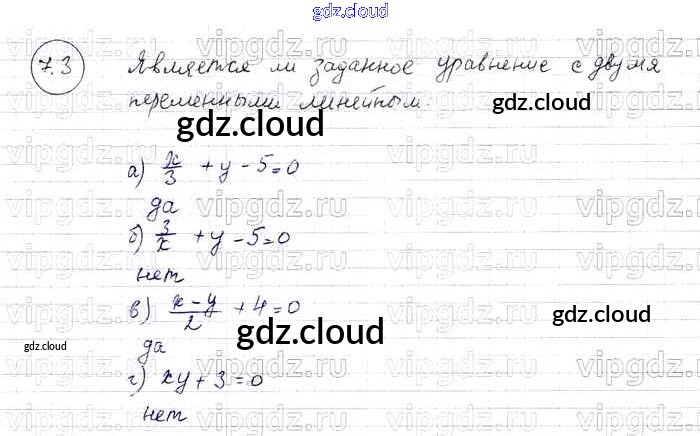 gdz.cloud
7.3 Является ли заданное уравнение с двумя
переменными линейным.
gdz.cloud
gdz.cloud
а) x/3 + y - 5 = 0
да
б) 3/x + y - 5 = 0
нет
в) (x - y)/2 + 4 = 0
gdz.cloud
gdz.cloud
gdz.cloud
да
г) xy + 3 = 0
нет
vipgdz.ru